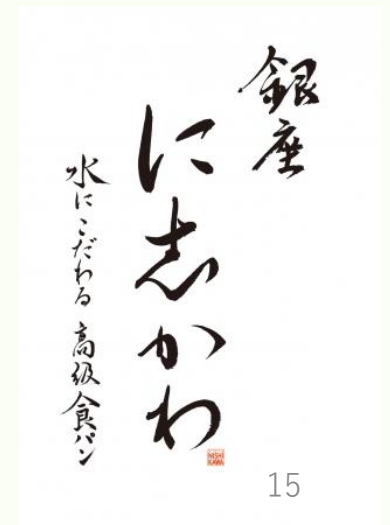 銀座
に志かわ
水にこだわる高級食パン
NISHI
KAWA
15